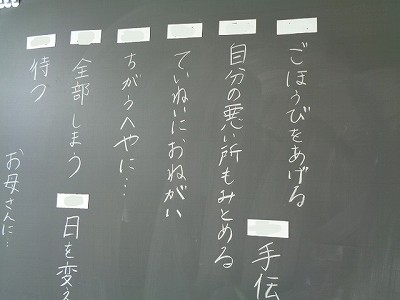 ごほうびをあげる
手伝
自分の悪い所もみとめる
ていねいにおねがい
ちがうへやに…
全部しまう
日を変え
待つ
お母さんに…